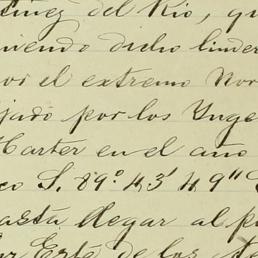 tínez del Rio, qu
niendo dicho linder
por el extremo Nor
ijado por los Inge
Harter en el año
co S. 89° 43' 49" S
asta llegar al p
or Este de los te